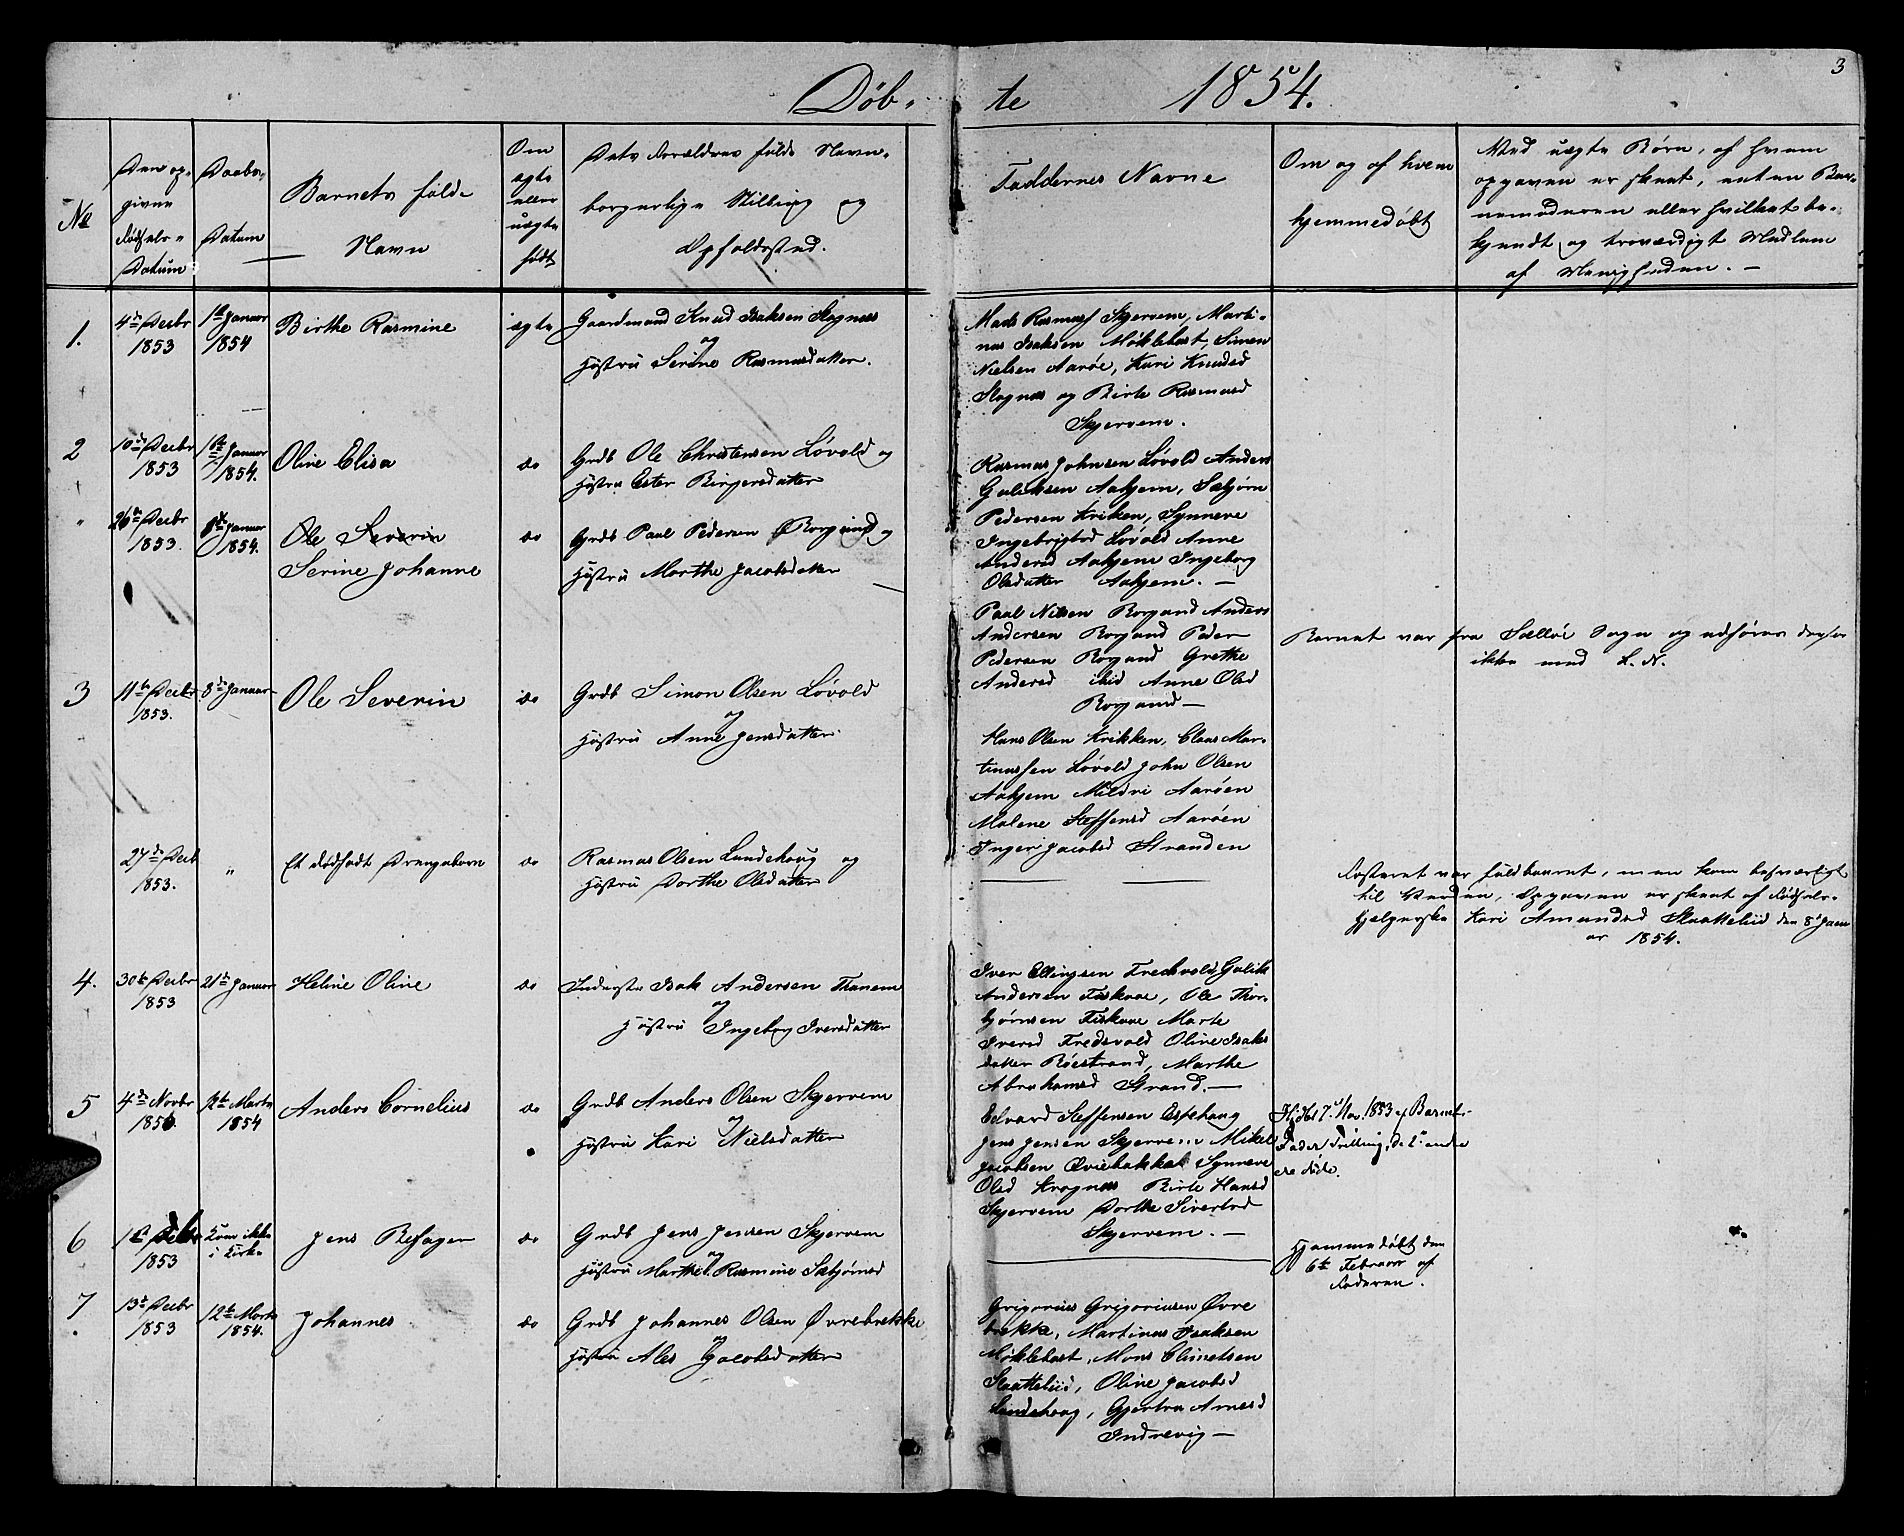 Døb-te 1854.
3
No
Den op-
givne
Fødsels-
Datum
Daabs-
Datum
Barnets fulde
Navn
Om
ægte
eller
uægte
født
Dets Forældres fulde Navn,
borgerlige Stilling og
Opholdssted.
Faddernes Navne
Om og af hvem
hjemmedøbt
Ved uægte Børn, af hvem
opgaven er skeet, enten Bar-
nemoderen eller hvilket be-
kjendt og troværdigt Medlem
af Menigheden. —
1.
4de Decbr
1853
1ste Januar
1854
Birthe Rasmine
ægte
Gaardmand Knud Isaksen Slognæs
og
Hustru Serine Rasmusdatter.
Mads Rasmuss Skjervem, Marti-
nus Isaksen Møklebost, Simen
Nielsen Aarøe, Kari Knudsd
Slognæs og Birte Rasmusd
Skjervem.
2
10de Decbr
1853
Januar
1854.
Oline Elisa
do
Grdb Ole Christensen Løvold og
Hustru Ester Birgersdatter
Rasmus Johnsen Løvold Anders
Guliksen Aahjem, Sæbjørn
Pedersen Kriken, Synneve
Ingebrigtsd Løvold Anne
Andersd Aahjem Ingeborg
Olsdatter Aahjem. —
"
26de Decbr
1853.
8de Januar
1854.
Ole Severin
Serine Johanne
do
Grdb Paul Pedersen Borgund og
Hustru Marthe Jacobsdatter
Paul Nilsen Borgund Anders
Andersen Borgund Peder
Pedersen Borgund Grethe
Andersd ibid Anne Olsd
Borgund —
Barnet var fra Sælløe Sogn og udføres derfor
ikke med L. N.
3
11te Decbr
1853.
8de Januar
Ole Severin
do
Grdb Simon Olsen Løvold
og
Hustru Anne Jensdatter
Hans Olsen Krikken, Claus Mar-
tinussen Løvold John Olsen
Aahjem Mildri Aarøen
Malene Steffensd Aarøen
Inger Jacobsd Stranden
27de Decb
1853.
"
Et dødfødt Drengebarn
do
Rasmus Olsen Lundehoug og
Hustru Dorthe Olsdatter
Fosteret var fuldbaaret, men kom besværligt
til Verden, Opgaven er skeet af Fødsels-
hjelperske Kari Amundsd Slaattelid den 8de Janu
ar 1854.
4.
30te Decbr
1853
21de Januar
Heline Oline
do
Inderste Isak Andersen Tranem
og
Hustru Ingeborg Iversdatter
Iver Ellingsen Fredsvold, Gulik
Andersen Fiskaae, Ole Thor-
bjørnsen Fiskaae Marte
Iversd Fredsvold Oline Isaks
datter Røestrand, Marthe
Abrahamsd Strand. —
5
4de Novbr
1853
12te Marts
1854
Anders Cornelius
do
Grdb Anders Olsen Skjervem
og
Hustru Kari Nielsdatter
Edvard Steffensen Espehoug
Jens Jensen Skjervem Mikel
Jacobsen Øvrebakket Synneve
Olsd Krognæs Birte Hansd
Skjervem Dorthe Sivertsd
Skjervem. —
Hjdbt 7de Nov. 1853 af Barnets
Fader Trilling, de 2de andre
ere døde.
6
1853
Kom ikke
i Kirke
Jens Besager
do
Grdb Jens Jensen Skjervem
og
Hustru Marthe Rasmine Sæbjørnsd
Hjemmedøbt den
6te Februar af
Faderen.
7.
13de Decbr
1853
12te Marts
1854.
Johannes
do
Grdb Johannes Olsen Øvrebrekke
og
Hustru Ales Jacobsdatter
Grigorius Grigoriusen Øvre
brekke, Martinus Isaksen
Møklebost, Mons Clemetsen
Slaattelid, Oline Jacobsd
Lundehoug, Gjertru Arnesd
Indrevig —